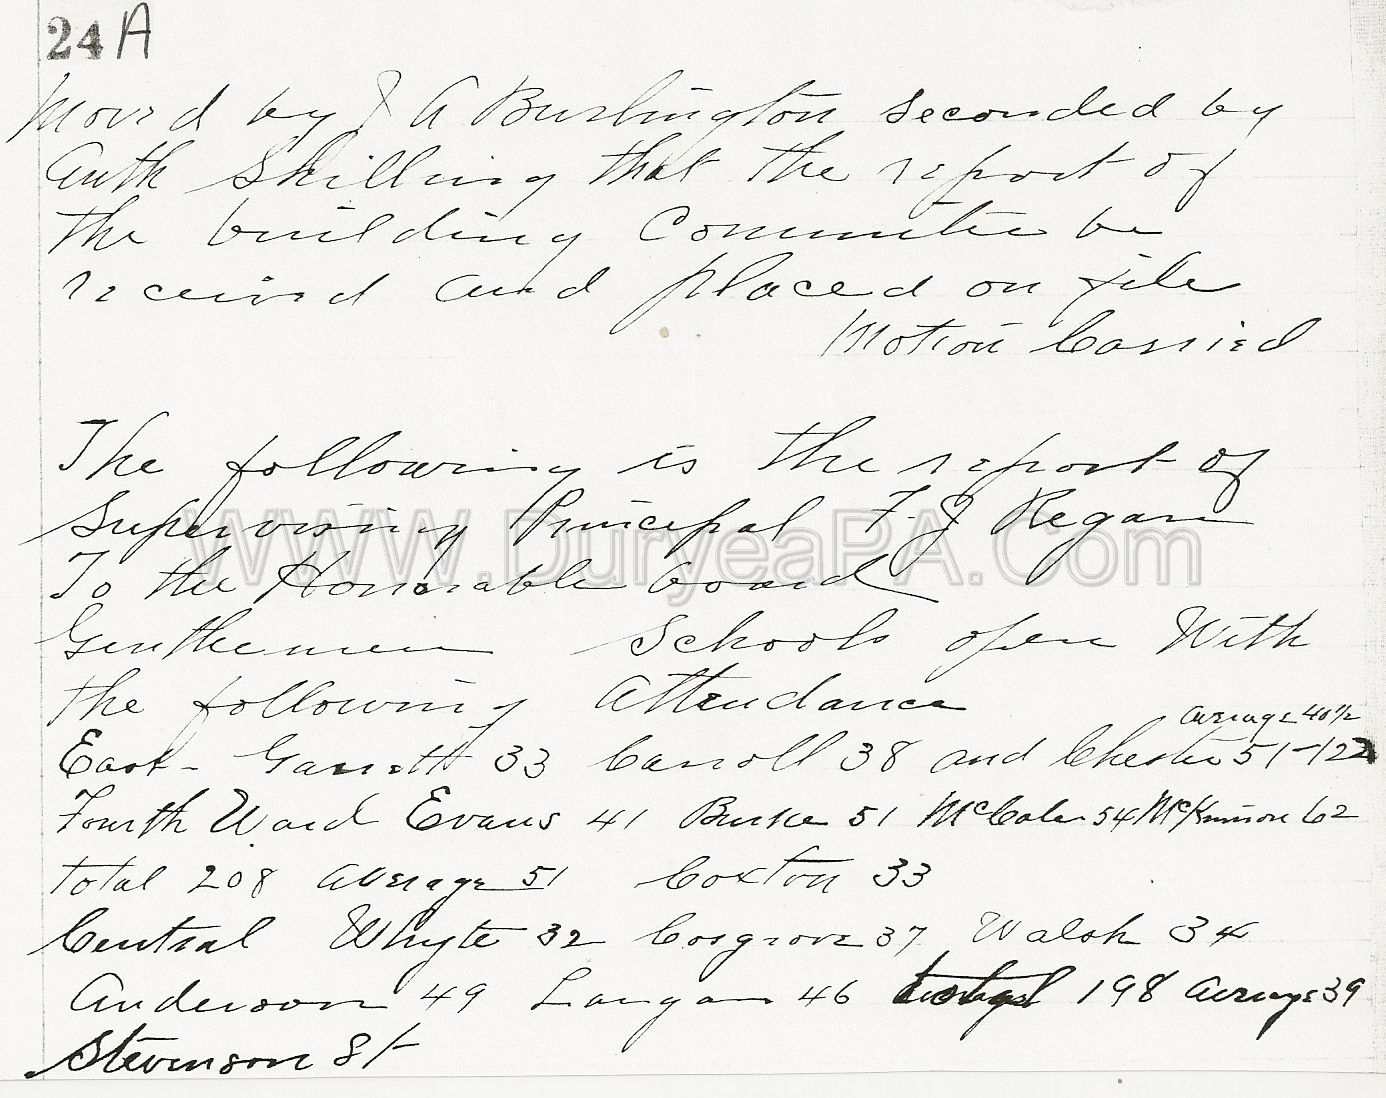 24 A
Moved by J A Burlington seconded by
Auth Skilling that the report of
the building Committee be
received and placed on file
Motion Carried
The following is the report of
Supervising Principal F. J Regan
www.DuryeaPA.Com
To the Honorable board
Gentlemen Schools open With
the following Attendance
average 40 1/2
East - Garrett 33 Carroll 38 and Chester 51 - 122
Fourth Ward Evans 41 Burke 51 McCabe 54 McKinnon 62
total 208 average 51 Coxton 33
Central Whyte 32 Cosgrove 37 Walsh 34
Anderson 49 Langan 46 total 198 average 39
Stevenson St